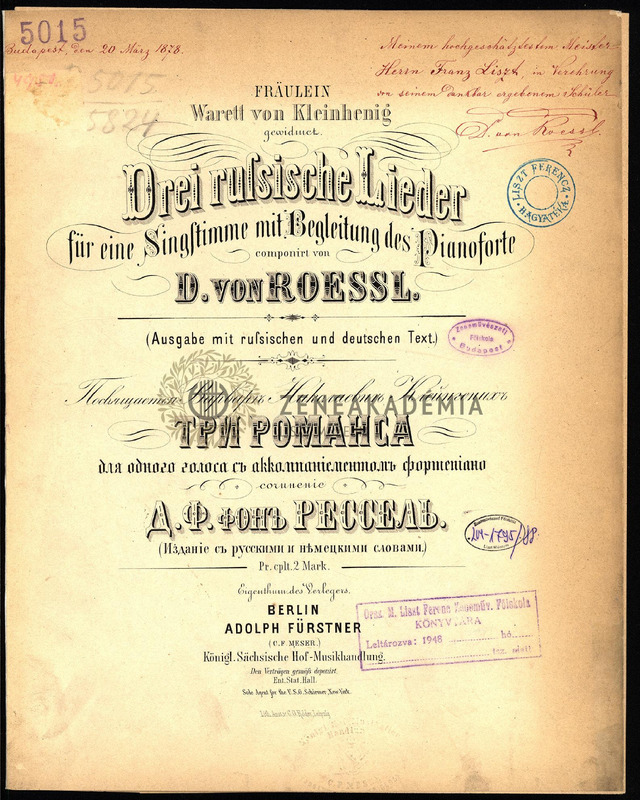 5015
Budapest, den 20 März 1878.
Meinem hochgeschätztestem Meister
Herrn Franz Liszt, in Verehrung
von seinem dankbar ergebenem Schüler
D. von Roessl.
5015
5824
FRÄULEIN
Warett von Kleinhenig
gewidmet.
Drei ruſsische Lieder
für eine Singstimme mit Begleitung des Pianoforte
componirt von
D. von ROESSL.
(Ausgabe mit ruſsischen und deutschen Text.)
LISZT FERENCZ HAGYATÉKA
Zeneművészeti
Főiskola
Budapest
Посвящается Варваръ Николаевнъ Клейнгенихъ
ZENEAKADEMIA
ТРИ РОМАНСА
для одного голоса съ аккомпаніементомъ фортепіано
сочиненіе
Д. Ф. фонъ РЕССЕЛЬ.
(Изданіе съ русскими и нѣмецкими словами.)
Pr. cplt. 2 Mark.
Eigenthum des Verlegers.
BERLIN
ADOLPH FÜRSTNER
(C. F. MESER.)
Königl. Sächsische Hof-Musikhandlung.
Den Verträgen gemäß deponirt.
Ent. Stat. Hall.
Sole Agent for the U.S.G. Schirmer, New York.
Lith. Anst. v. C. G. Röder, Leipzig.
Orsz. M. Liszt Ferenc Zeneműv. Főiskola
KÖNYVTÁRA
Leltározva: 1948 hó